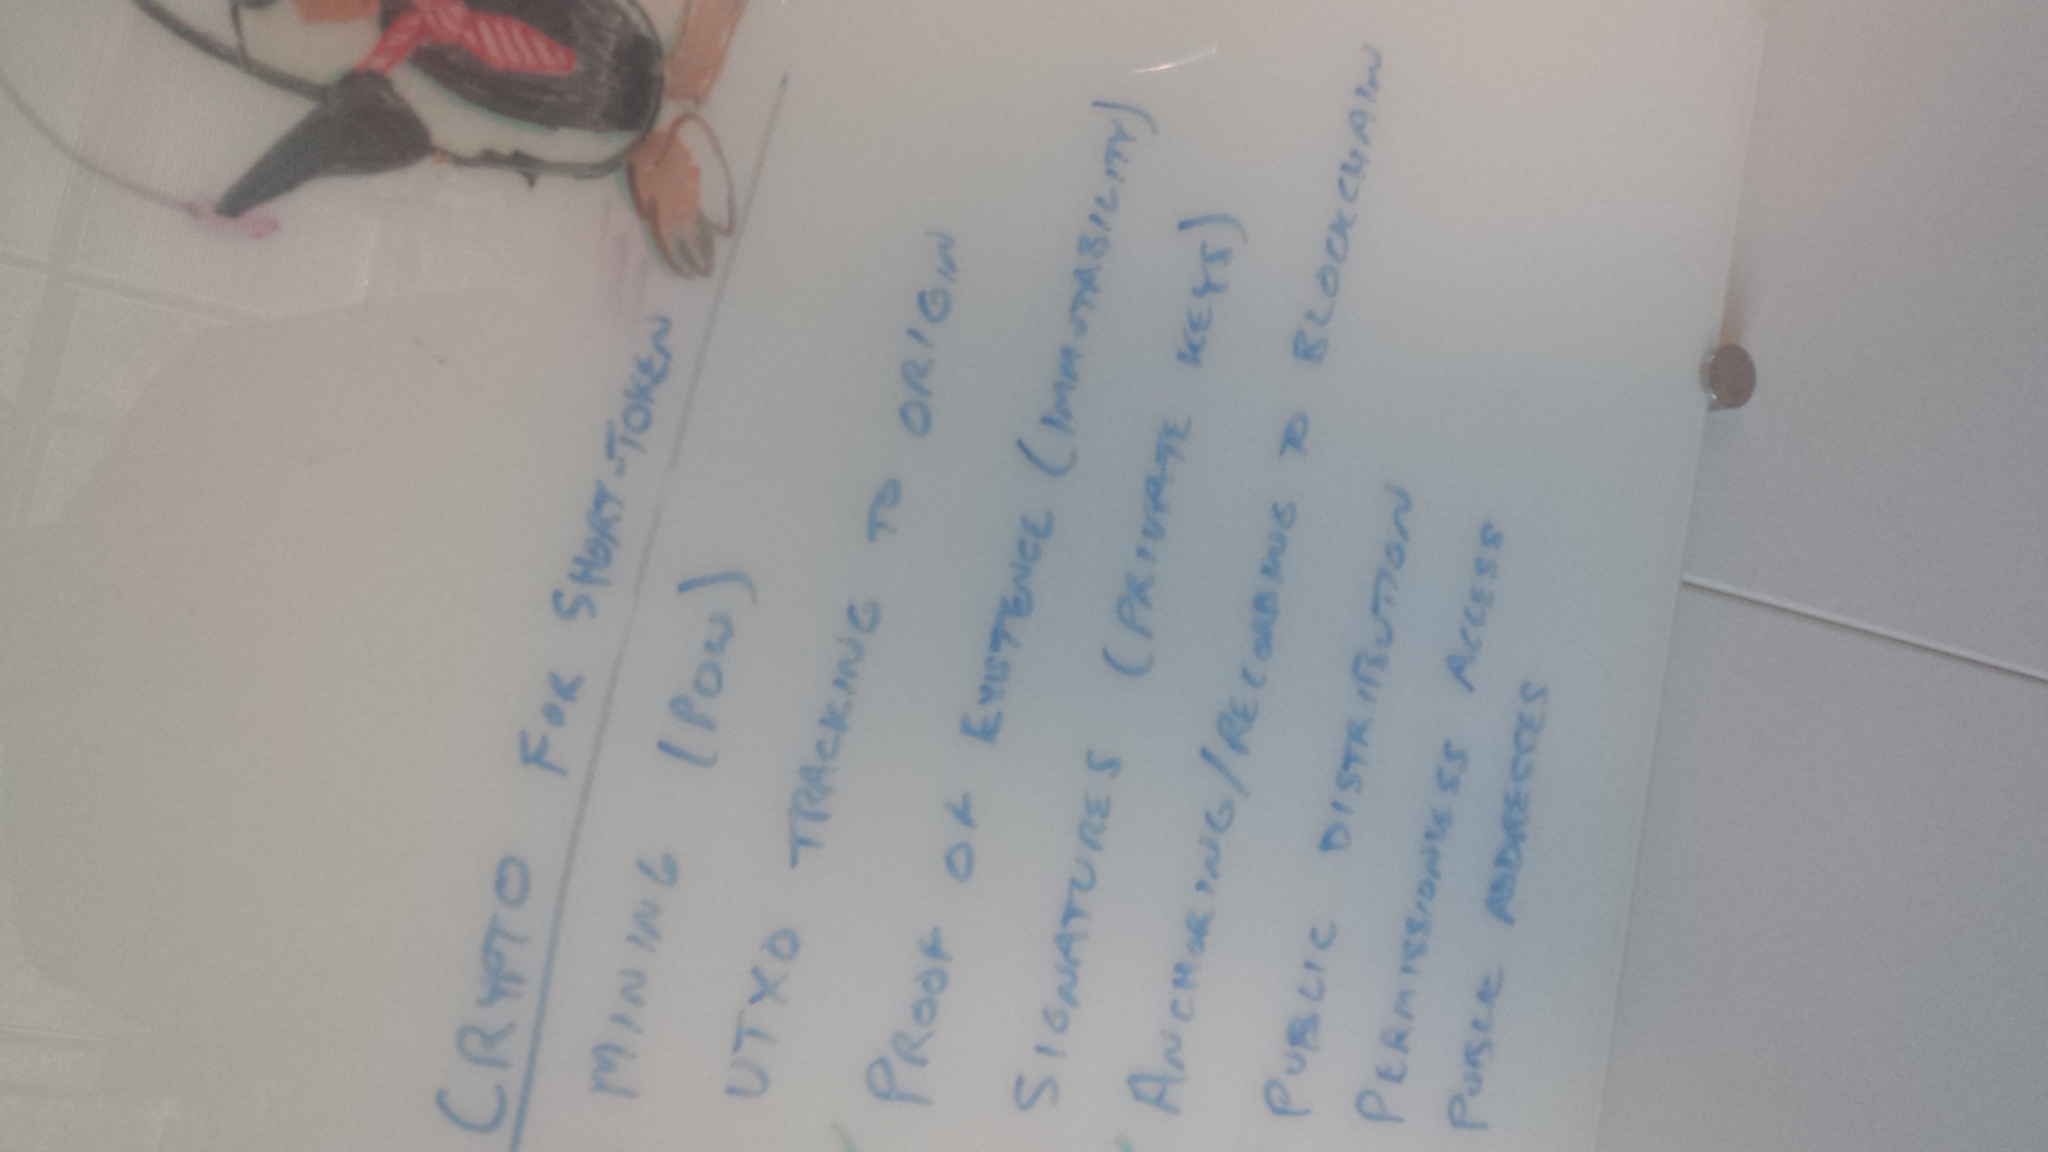 CRYPTO FOR SHORT-TOKEN
MINING (POW)
UTXO TRACKING TO ORIGIN
PROOF OF EXISTENCE (IMMUTABILITY)
SIGNATURES (PRIVATE KEYS)
ANCHORING/RECORDING TO BLOCKCHAIN
PUBLIC DISTRIBUTION
PERMISSIONLESS ACCESS
PUBLIC ADDRESSES